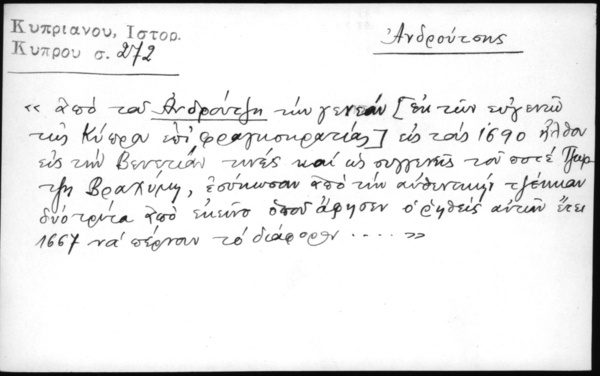 Κυπριανου, Ιστορ.
Κυπρου σ. 272
Ἀνδρούτσης
« ἀπό τοῦ Ἀνδρούτζη τήν γενεάν [ἐκ τῶν εὐγενῶν
τῆς Κύπρου ἐπί φραγκοκρατίας] εἰς τάς 1690 ἦλθον
εἰς τήν Βενετίαν τινές καί ὡς συγγενεῖς τοῦ ποτέ Τζωρ
τζη Βραχίμη, ἐσήκωσαν ἀπό τήν αὐθεντικήν τζέκκαν
δύο τρίτα ἀπό ἐκεῖνο ὁποῦ ἄφησεν ὁ ῥηθείς αὐτῶν ἔτει
1667 νά πέρνουν τό διάφορον ..... »